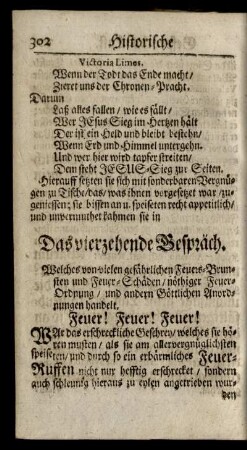 302 Historische
Victoria Limes.
Wenn der Todt das Ende macht/
Zieret uns der Chronen-Pracht.
Darum
Laß alles fallen/ wie es fällt/
Wer JEsus Sieg im Hertzen hält
Der ist ein Held und bleibt bestehn/
Wenn Erd und Himmel untergehn.
Und wer hier wird tapfer streiten/
Dem steht JESUS-Sieg zur Seiten.
Hierauff setzten sie sich mit sonderbaren Vergnü-
gen zu Tisch/ das/ was ihnen vorgesetzet war/ zu-
geniessen; sie bissen an u. speiseten recht appetitlich/
und unvermuthet kahmen sie in
Das vierzehende Gespräch.
Welches von vielen gefährlichen Feuers-Brun-
sten und Feuer-Schäden/ nöthiger Feuer-
Ordnung/ und andern Göttlichen Anord-
nungen handelt.
Feuer! Feuer! Feuer!
WJe das erschreckliche Geschrey/ welches sie hö-
ren musten/ als sie am allervergnüglichsten
speiseten/ und durch so ein erbärmliches Feuer-
Ruffen nicht nur hefftig erschrecket/ sondern
auch schleunig hieraus zu eylen angetrieben wur-
den